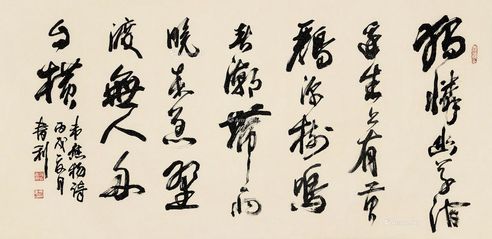 獨憐幽草澗
邊生上有黄
鸝深樹鳴
春潮帶雨
晚来急野
渡無人舟
自横
韋應物詩
丙戌夏月
春利